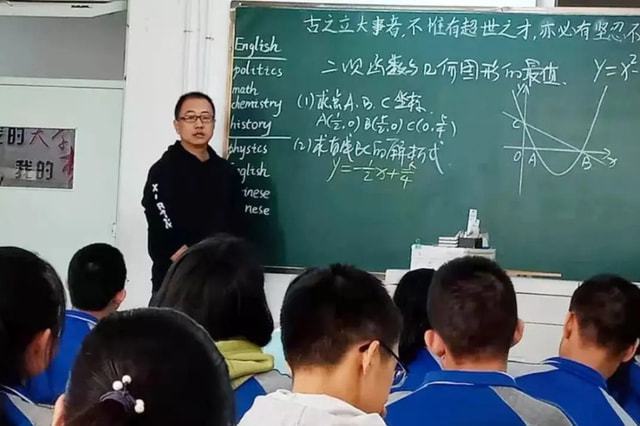 古之立大事者，不惟有超世之才，亦必有坚忍不
English
politics
math
chemistry
history
physics
English
Chinese
Chinese
二次函数与几何图形的最值
y=x²
(1)求点A、B、C坐标
A(½,0) B(5/2,0) C(0,5/4)
(2)求直线BC的解析式
y=-½x+5/4
y
C
O
A
B
x
我的大学
我的